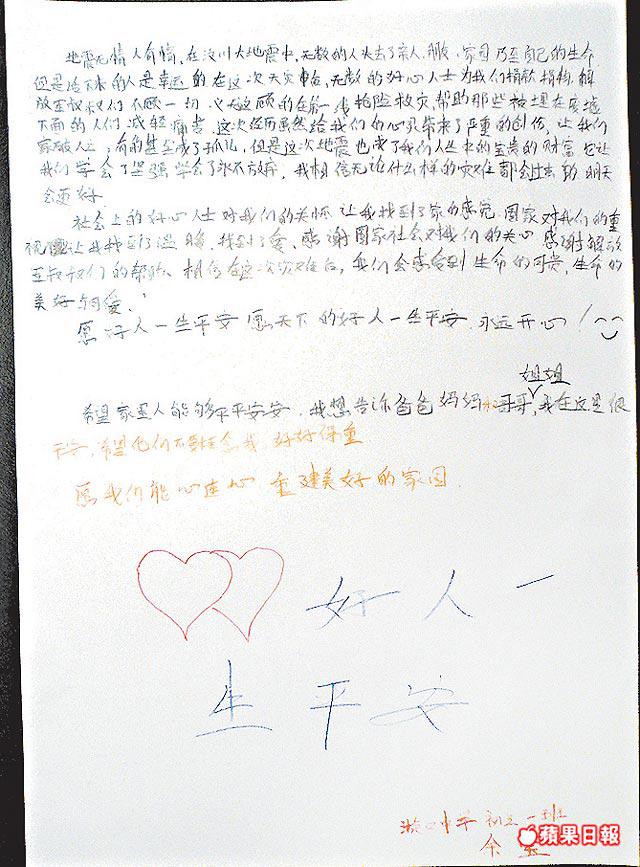 地震无情人有情，在汶川大地震中，无数的人失去了亲人、朋友、家园乃至自己的生命
但是活下来的人是幸运的在这次天灾中，无数的好心人士为我们捐款捐物，解
放军叔叔们不顾一切 义无返顾的在第一线抢险救灾帮助那些被埋在废墟
下面的人们减轻痛苦，这次经历虽然给我们的心灵带来了严重的创伤，让我们
家破人亡，有的甚至成了孤儿，但是这次地震也成了我们人生中的宝贵的财富，它让
我们学会了坚强学会了永不放弃，我相信无论什么样的灾难都会过去的 明天
会更好。
社会上的好心人士对我们的关怀 让我找到了家的感觉，国家对我们的重
视让我找到了温暖，找到了爱，感谢国家社会对我们的关心 感谢解放
军叔叔们的帮助，相信在这次灾难后，我们会感受到生命的可贵，生命的
美好与爱。
愿好人一生平安 愿天下的好人一生平安，永远开心！
姐姐
希望家里人能够平平安安，我想告诉爸爸妈妈和哥哥，我在这里很
平安，希望他们不要挂念我，好好保重
愿我们能心连心 重建美好的家园．
好人一
生平安
漩口中学 初 一班
余
蘋果日報